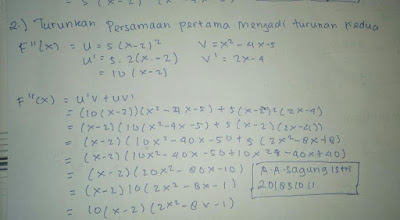 2.) Turunkan Persamaan pertama menjadi turunan kedua
F''(x) = u = 5(x-2)² V = x²-4x-5
u' = 5.2(x-2) V' = 2x-4
= 10(x-2)
F''(x) = u'v + uv'
= (10(x-2))(x²-4x-5) + 5(x-2)²(2x-4)
= (x-2)(10(x²-4x-5) + 5(x-2)(2x-4))
= (x-2)(10x²-40x-50 + 5(2x²-8x+8)
= (x-2)(10x²-40x-50+10x²-40x+40)
= (x-2)(20x²-80x-10)
= (x-2)10(2x²-8x-1)
= 10(x-2)(2x²-8x-1)
A.A.Sagung Istri